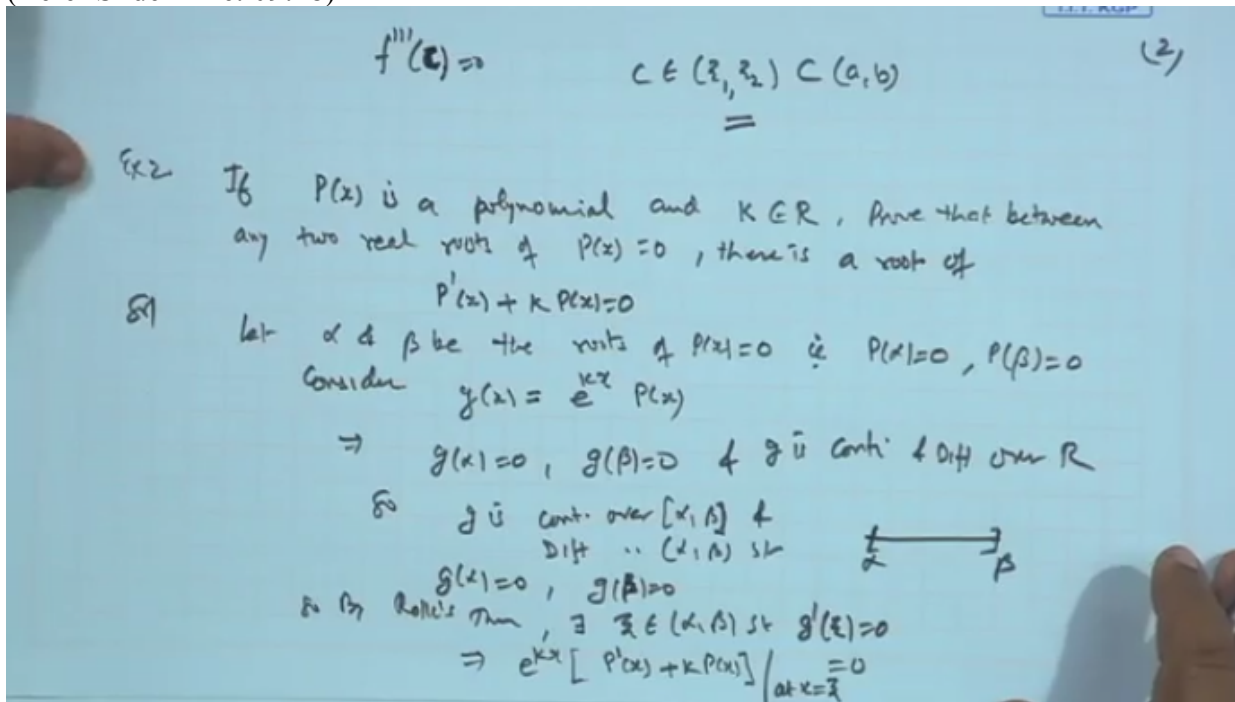 I.I.T. KGP
f'''(c) = 0 c ∈ (ξ₁, ξ₂) ⊂ (a, b) (2)
Ex 2 If P(x) is a polynomial and K ∈ R, Prove that between
any two real roots of P(x) = 0, there is a root of
P'(x) + K P(x) = 0
Sol Let α & β be the roots of P(x) = 0 ie P(α) = 0, P(β) = 0
Consider g(x) = e^{kx} P(x)
⇒ g(α) = 0, g(β) = 0 & g is conti & Diff over R
So g is cont. over [α, β] &
Diff .. (α, β) st
g(α) = 0, g(β) = 0
α β
So By Rolle's Thm, ∃ ξ ∈ (α, β) st g'(ξ) = 0
⇒ e^{kx} [P'(x) + K P(x)] |_{at x = ξ} = 0